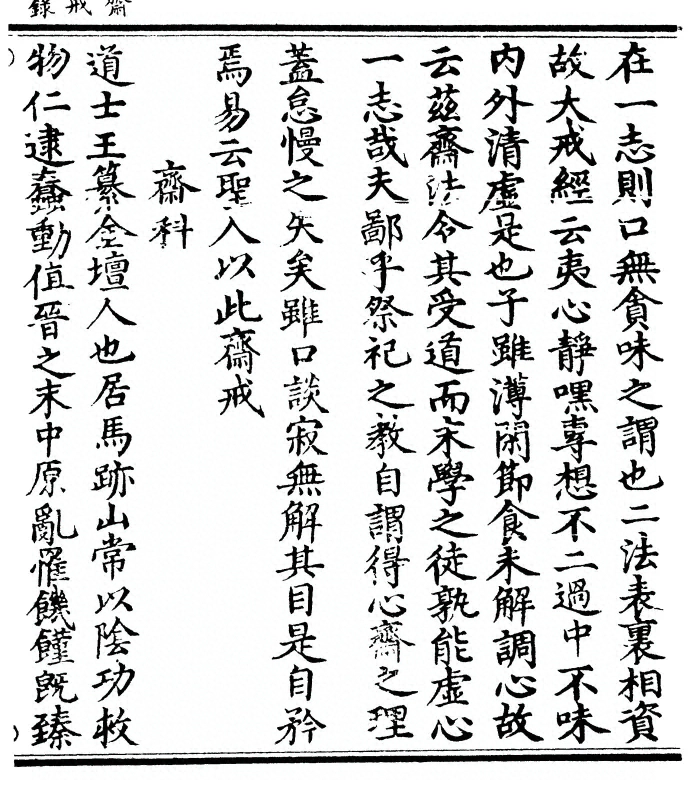 齋戒錄
在一志則口無貪味之謂也二法表裏相資
故大戒經云夷心靜嘿專想不二過中不味
內外清虛是也子雖薄閑節食未解調心故
云茲齋法令其受道而末學之徒孰能虛心
一志哉夫鄙乎祭祀之教自謂得心齋之理
蓋怠慢之失矣雖口談寂無解其目是自矜
焉易云聖人以此齋戒
齋科
道士王纂金壇人也居馬跡山常以陰功救
物仁逮蠢動值晉之末中原亂罹饑饉旣臻